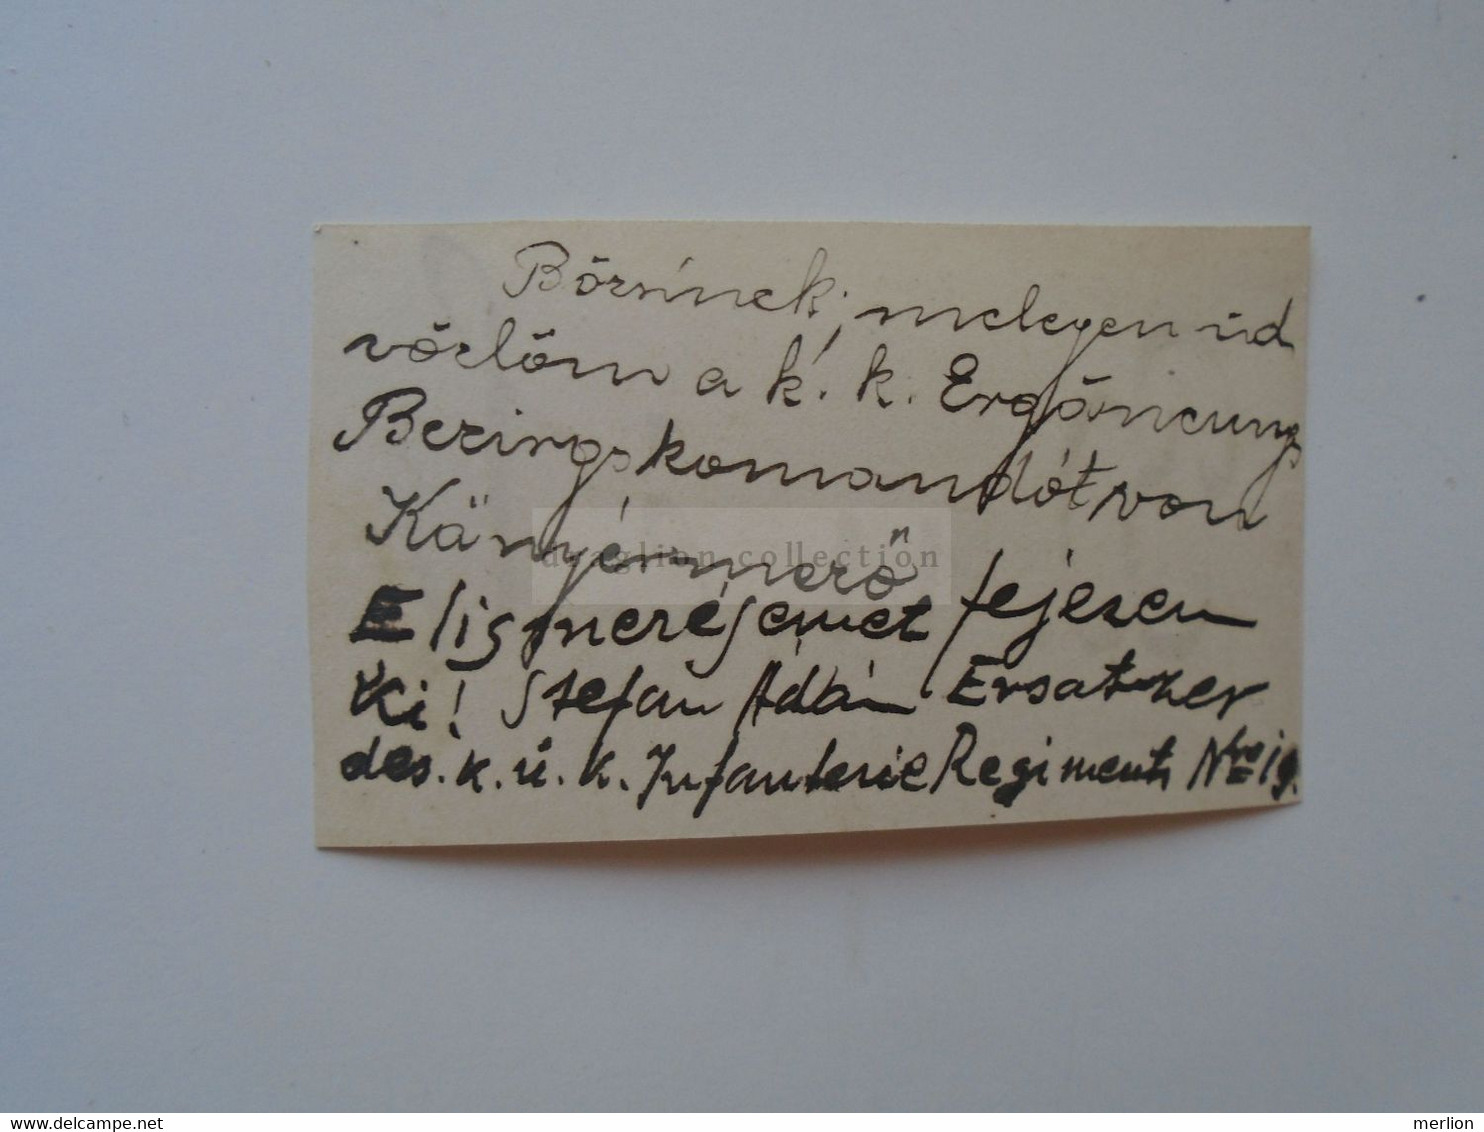 Börsinek; melegen üd
vözlöm a k. k. Ergäncungs
Bezirgskomandót von
Känyérmerő
Elismerésemet fejezem
ki! Stefan Ádám Ersatzer
des. k. ú. k. Infanterie Regiments Nro 19.
draglion collection
merlion